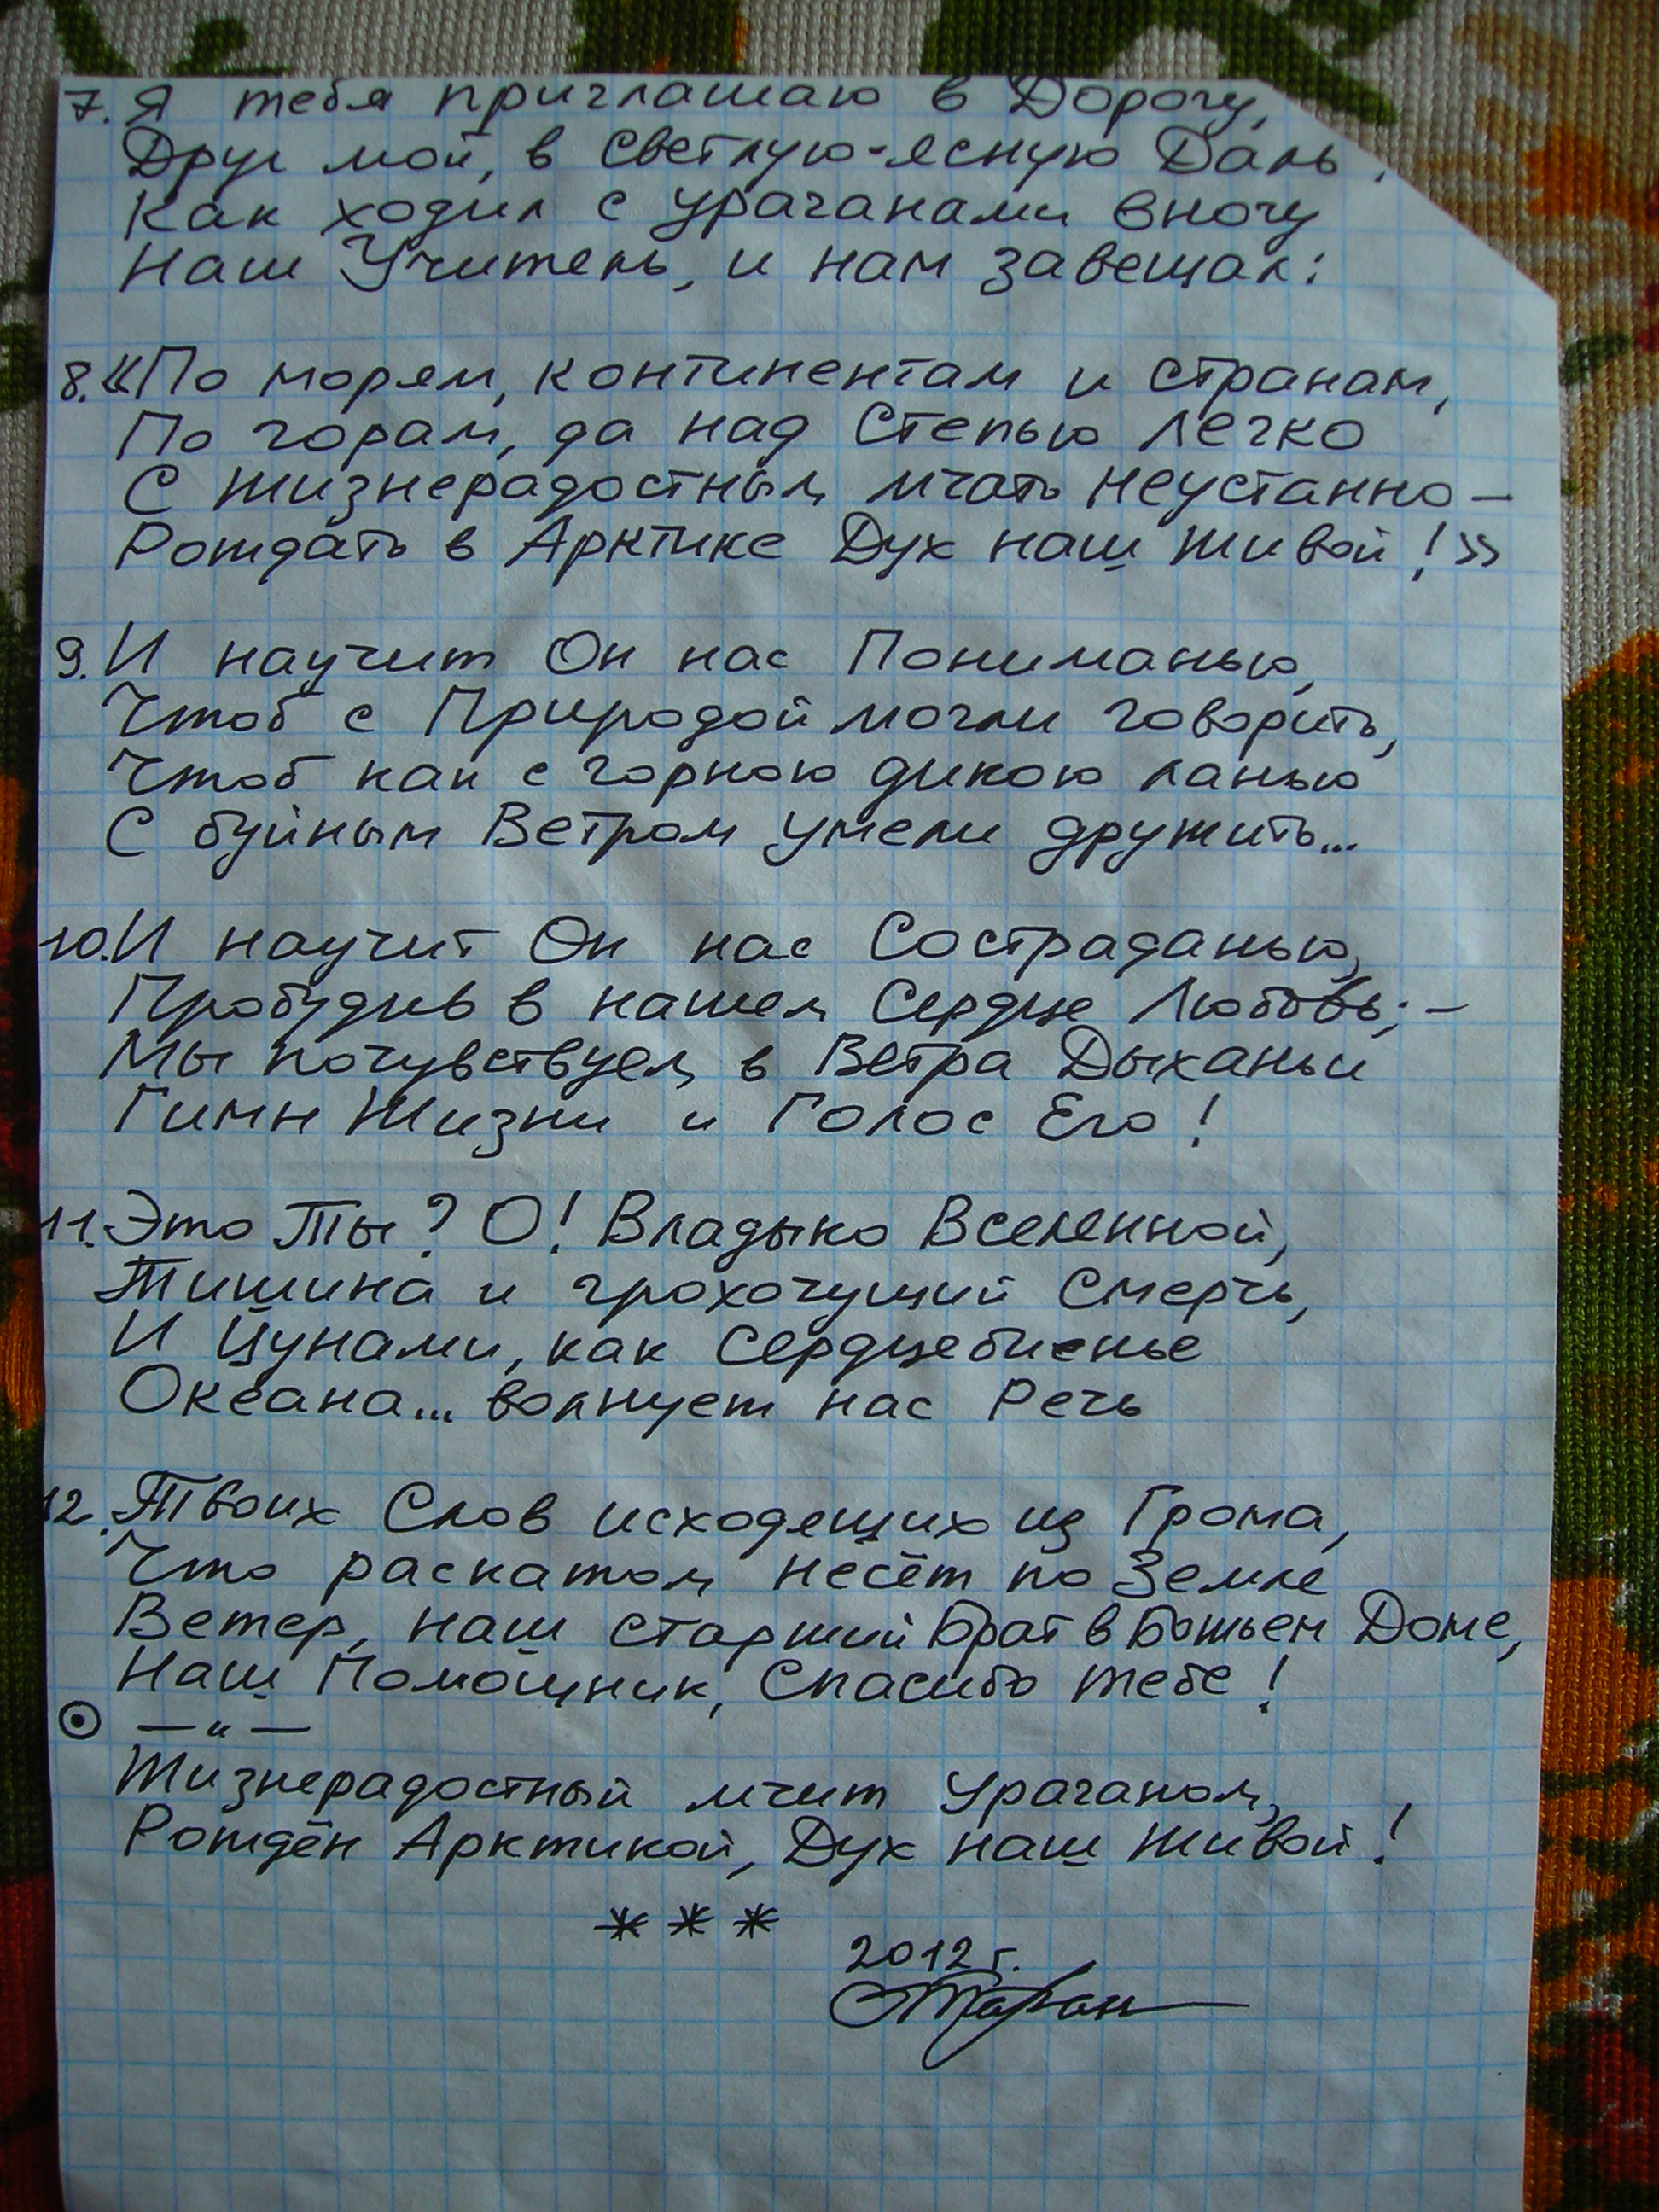 7. Я тебя приглашаю в Дорогу,
Друг мой, в светлую-ясную Даль,
Как ходил с ураганами вногу
Наш Учитель, и нам завещал:
8. «По морям, континентам и странам,
По горам, да над Степью легко
С жизнерадостным мчать неустанно –
Рождать в Арктике Дух наш живой!»
9. И научит Он нас Пониманью,
Чтоб с Природой могли говорить,
Чтоб как с горною дикою ланью
С буйным Ветром умели дружить...
10. И научит Он нас Состраданью,
Пробудив в нашем Сердце Любовь; –
Мы почувствуем в Ветра Дыханьи
Гимн Жизни и Голос Его!
11. Это Ты? О! Владыко Вселенной,
Тишина и грохочущий Смерчь,
И Цунами, как Сердцебиенье
Океана... волнует нас Речь
12. Твоих Слов исходящих из Грома,
Что раскатом несёт по Земле
Ветер, наш старший Брат в Божьем Доме,
Наш Помощник, Спасибо тебе!
⊙ – " –
Жизнерадостный мчит Ураганом,
Рождён Арктикой, Дух наш живой!
* * *
2012 г.